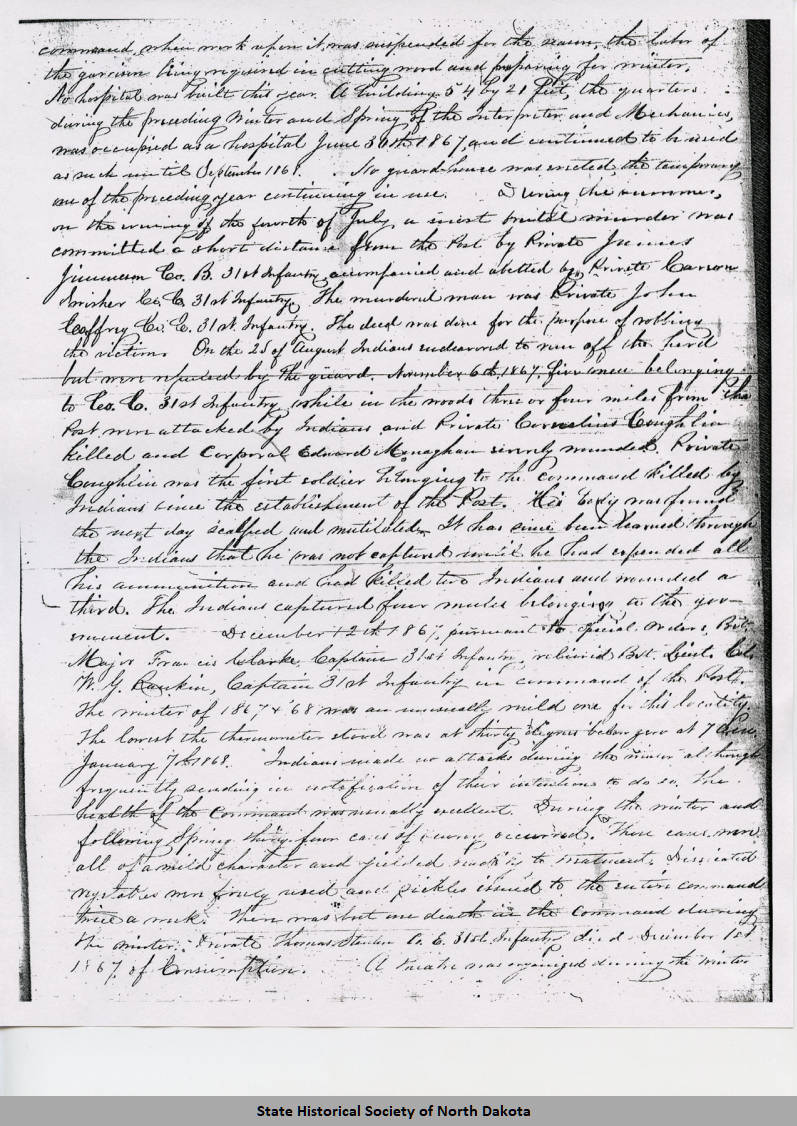 command, when work upon it was suspended for the season, the labor of
the garrison being required in cutting wood and preparing for winter.
No hospital was built this year. A building 54 by 21 feet, the quarters
during the preceding Winter and Spring of the Interpreter and Mechanics,
was occupied as a hospital June 30th 1867, and continued to be used
as such until September 1868. No guard-house was erected, the temporary
one of the preceding year continuing in use. During the summer,
on the evening of the fourth of July, a most brutal murder was
committed a short distance from the Post by Private James
Co. B. 31st Infantry, accompanied and abetted by Private Carson
Co. C 31st Infantry. The murdered man was Private John
Caffrey Co. E. 31st Infantry. The deed was done for the purpose of robbing
the victim. On the 2d of August Indians endeavored to run off the herd
but were repulsed by the guard. November 6th, 1867, five men belonging
to Co. C. 31st Infantry, while in the woods three or four miles from the
Post were attacked by Indians and Private Cornelius Coughlin
killed and Corporal Edward Monaghan severely wounded. Private
Coughlin was the first soldier belonging to the command killed by
Indians since the establishment of the Post. His body was found
the next day scalped and mutilated. It has since been learned through
the Indians that he was not captured until he had expended all
his ammunition and had killed two Indians and wounded a
third. The Indians captured four mules belonging to the gov-
ernment. December 12th 1867, pursuant to Special Orders, Bvt.
Major Francis Clarke, Captain 31st Infantry, relieved Bvt. Lieut. Col.
W. G. Rankin, Captain 31st Infantry in command of the Post.
The winter of 1867 & '68 was an unusually mild one for this locality.
The lowest the thermometer stood was at thirty degrees below zero at 7 a.m.
January 7th 1868. Indians made no attacks during the winter although
frequently sending in notification of their intentions to do so. The
health of the Command was usually excellent. During the winter and
following Spring thirty-four cases of scurvy occurred. These cases were
all of a mild character and yielded readily to treatment. Desiccated
vegetables were freely used and pickles issued to the entire command
twice a week. There was but one death in the Command during
the winter. Private Thomas Co. E. 31st Infantry died December 1st
1867, of Consumption. A theatre was organized during the winter
State Historical Society of North Dakota